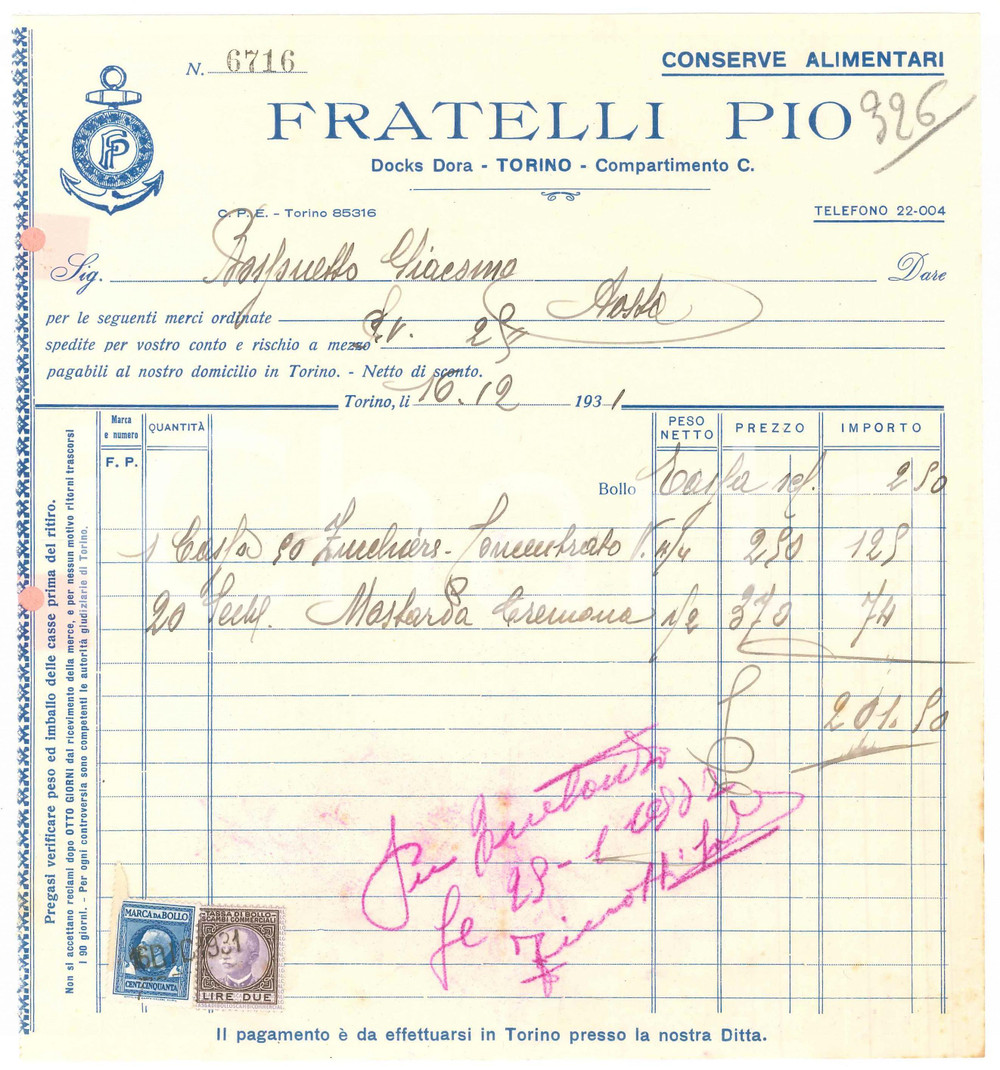 N. 6716
CONSERVE ALIMENTARI
FP
FRATELLI PIO
326
Docks Dora - TORINO - Compartimento C.
C. P. E. - Torino 85316
TELEFONO 22-004
Sig. Giacomo Dare
Aosta
per le seguenti merci ordinate
spedite per vostro conto e rischio a mezzo
pagabili al nostro domicilio in Torino. - Netto di sconto.
Torino, li 16.12 1931
Marca e numero
QUANTITÀ
PESO NETTO
PREZZO
IMPORTO
F. P.
Bollo Tassa 2 50
1 Cassa 50 Concentrato 250 125
20 Mostarda Cremona 1/2 370 74
201.50
Per quietanza
25-1 1932
Pregasi verificare peso ed imballo delle casse prima del ritiro.
Non si accettano reclami dopo OTTO GIORNI dal ricevimento della merce, e per nessun motivo ritorni trascorsi
i 90 giorni. - Per ogni controversia sono competenti le autorità giudiziarie di Torino.
MARCA DA BOLLO
CENT. CINQUANTA
TASSA DI BOLLO
SCAMBI COMMERCIALI
LIRE DUE
16 DIC 1931
Il pagamento è da effettuarsi in Torino presso la nostra Ditta.